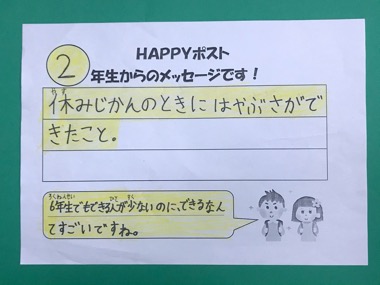 HAPPYポスト
②年生からのメッセージです！
休みじかんのときにはやぶさがで
きたこと。
6年生でもできる人が少ないのに、できるなん
てすごいですね。